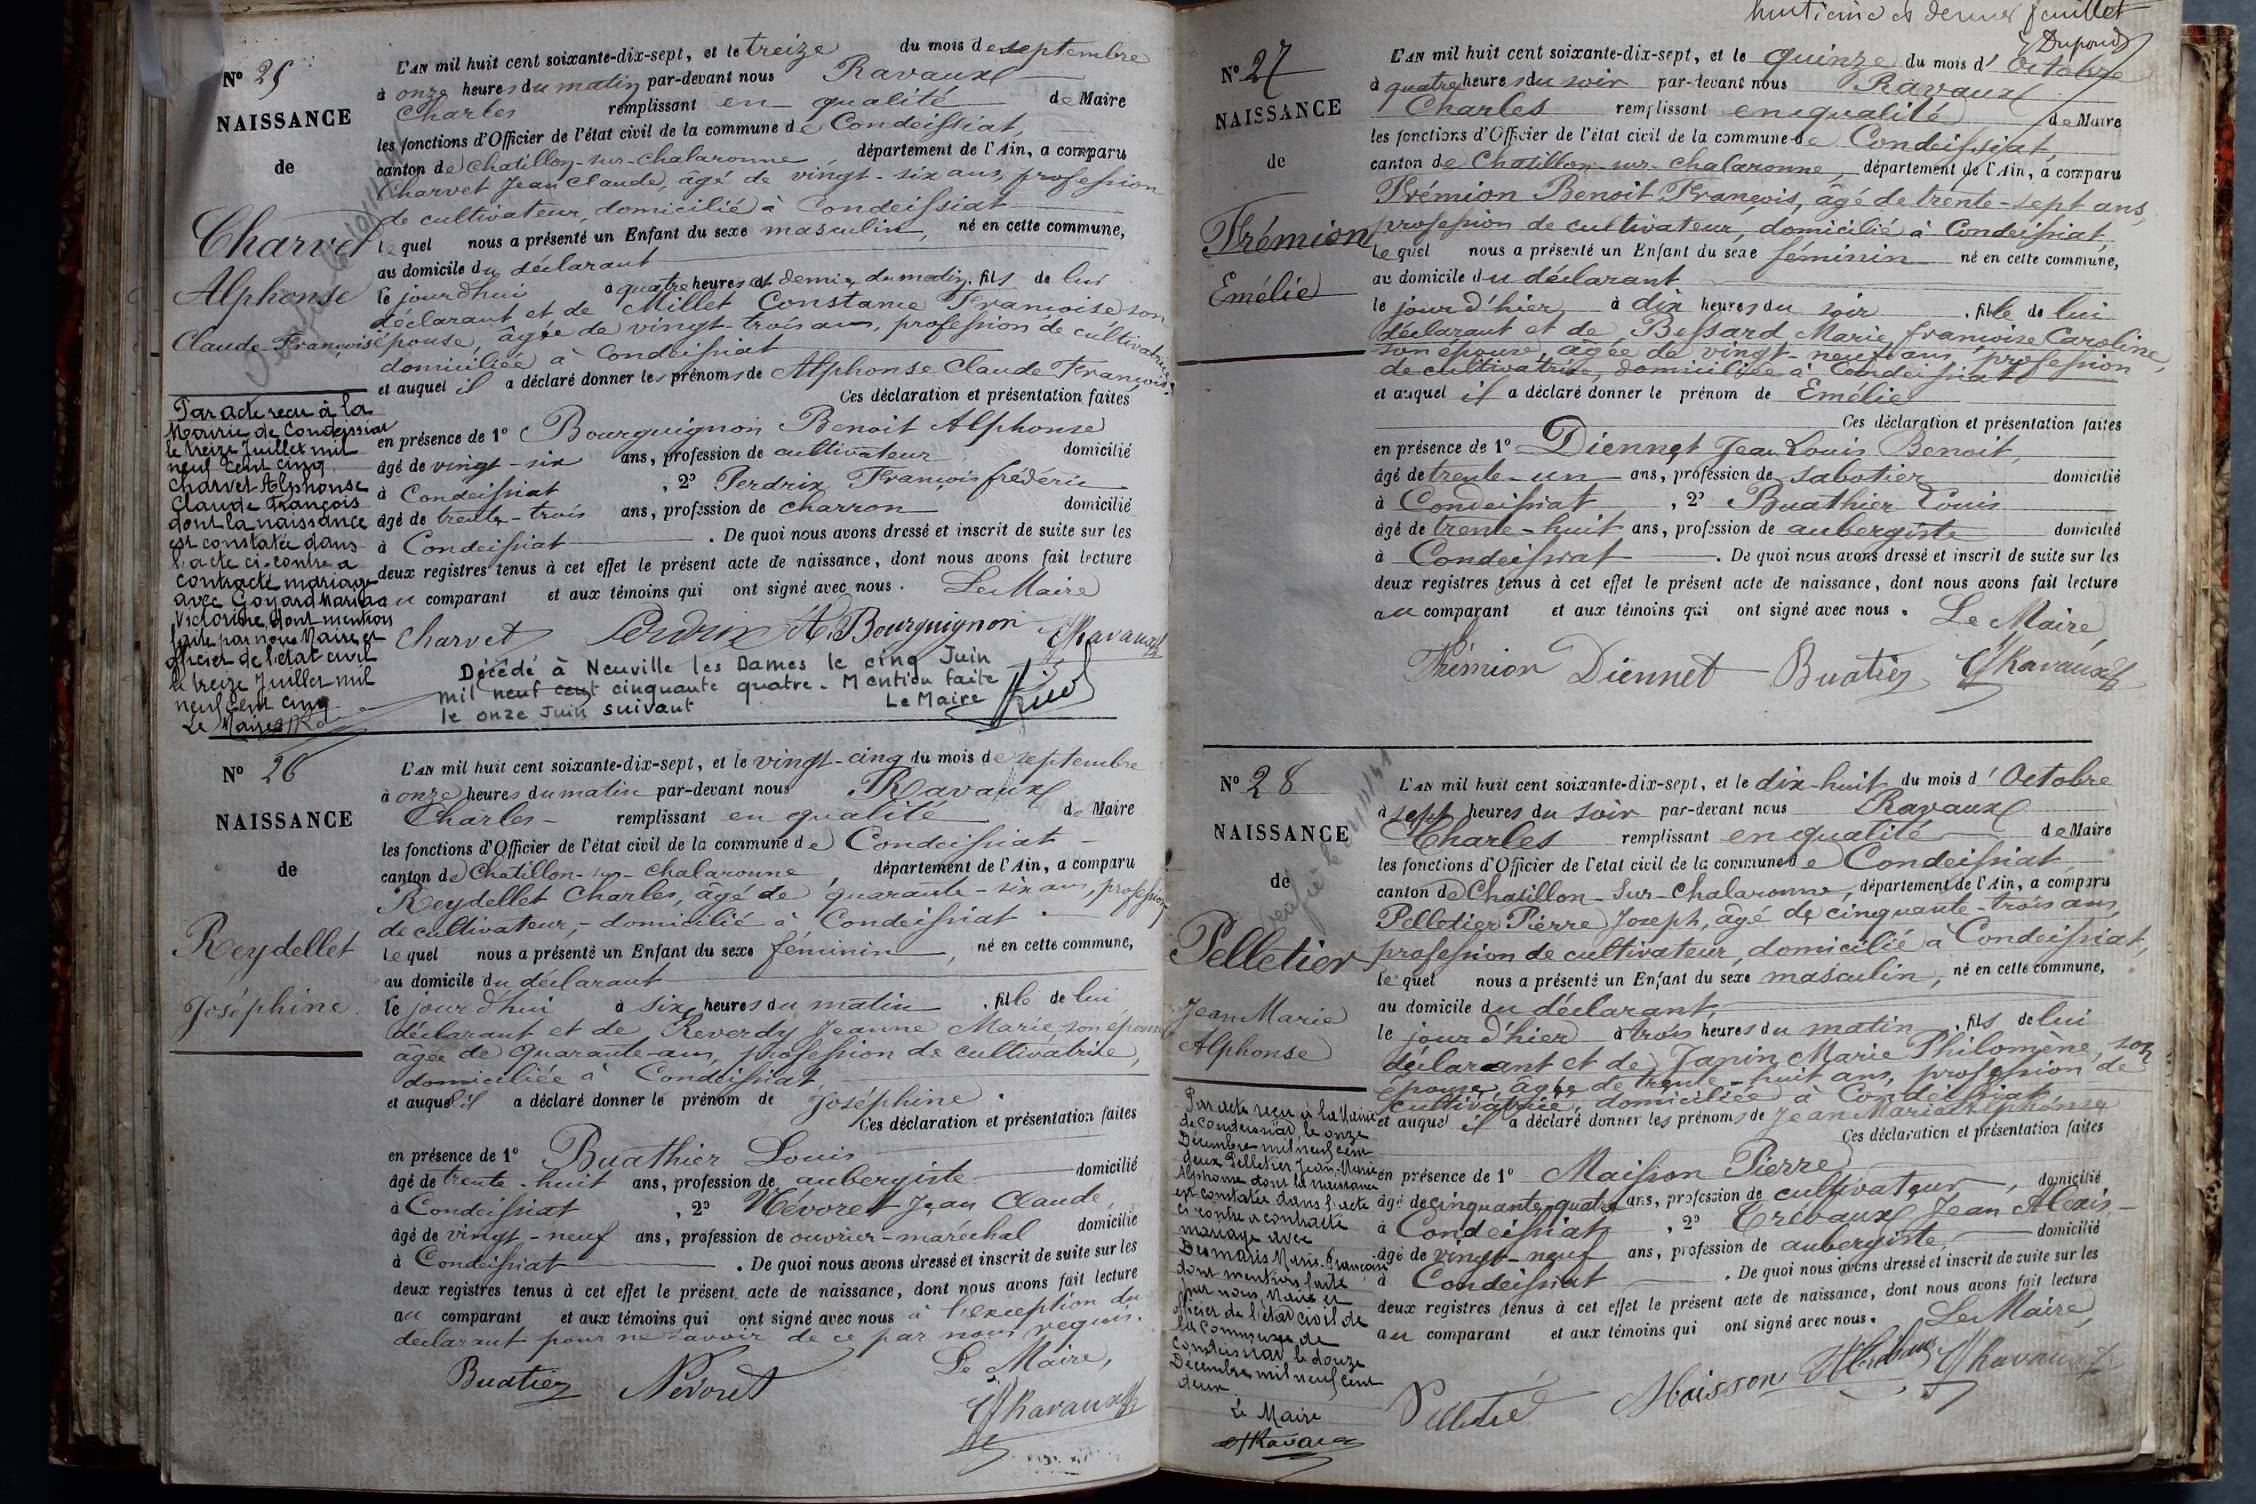 N° 25
NAISSANCE
de
Charvet
Alphonse
Claude François
Par acte reçu à la
Mairie de Condeissiat
le treize Juillet mil
neuf cent cinq
Charvet Alphonse
Claude François
dont la naissance
est constatée dans
l'acte ci-contre a
contracté mariage
avec Goyard Maria
Victorine, dont mention
faite par nous Maire et
officier de l'état civil
le treize Juillet mil
neuf cent cinq
Le Maire
L'AN mil huit cent soixante-dix-sept, et le treize du mois de septembre
à onze heures du matin par-devant nous Ravaux
Charles remplissant en qualité de Maire
les fonctions d'Officier de l'état civil de la commune de Condeissiat,
canton de Chatillon-sur-Chalaronne, département de l'Ain, a comparu
Charvet Jean Claude, âgé de vingt-six ans, profession
de cultivateur, domicilié à Condeissiat
lequel nous a présenté un Enfant du sexe masculin, né en cette commune,
au domicile du déclarant
le jourd'hui à quatre heures et demie du matin, fils de lui
déclarant et de Millet Constance Françoise son
épouse, âgée de vingt-trois ans, profession de cultivatrice
domiciliée à Condeissiat
et auquel il a déclaré donner les prénoms de Alphonse Claude François.
Ces déclaration et présentation faites
en présence de 1° Bourguignon Benoit Alphonse
âgé de vingt-six ans, profession de cultivateur domicilié
à Condeissiat, 2° Perdrix François frédéric
âgé de trente-trois ans, profession de charron domicilié
à Condeissiat. De quoi nous avons dressé et inscrit de suite sur les
deux registres tenus à cet effet le présent acte de naissance, dont nous avons fait lecture
au comparant et aux témoins qui ont signé avec nous. Le Maire
Charvet Perdrix A. Bourguignon Ch Ravaux
Décédé à Neuville les Dames le cinq Juin
mil neuf cent cinquante quatre. Mention faite
le onze Juin suivant Le Maire
N° 26
NAISSANCE
de
Reydellet
Joséphine
L'AN mil huit cent soixante-dix-sept, et le vingt-cinq du mois de septembre
à onze heures du matin par-devant nous Ravaux
Charles remplissant en qualité de Maire
les fonctions d'Officier de l'état civil de la commune de Condeissiat
canton de Chatillon-sur-Chalaronne, département de l'Ain, a comparu
Reydellet Charles, âgé de quarante-six ans, profession
de cultivateur, domicilié à Condeissiat.
lequel nous a présenté un Enfant du sexe féminin, né en cette commune,
au domicile du déclarant
le jourd'hui à six heures du matin, fille de lui
déclarant et de Reverdy Jeanne Marie, son épouse
âgée de quarante-ans, profession de cultivatrice,
domiciliée à Condeissiat,
et auquel il a déclaré donner le prénom de Joséphine.
Ces déclaration et présentation faites
en présence de 1° Buathier Louis
âgé de trente-huit ans, profession de aubergiste domicilié
à Condeissiat, 2° Névoret Jean Claude,
âgé de vingt-neuf ans, profession de ouvrier-maréchal domicilié
à Condeissiat. De quoi nous avons dressé et inscrit de suite sur les
deux registres tenus à cet effet le présent acte de naissance, dont nous avons fait lecture
au comparant et aux témoins qui ont signé avec nous à l'exception du
déclarant pour ne savoir de ce par nous requis.
Le Maire,
Buatier Névoret Ch Ravaux
huitième et dernier feuillet
Dupond
N° 27
NAISSANCE
de
Frémion
Emélie
L'AN mil huit cent soixante-dix-sept, et le quinze du mois d'Octobre
à quatre heures du soir par-devant nous Ravaux
Charles remplissant en qualité de Maire
les fonctions d'Officier de l'état civil de la commune de Condeissiat,
canton de Chatillon-sur-Chalaronne, département de l'Ain, a comparu
Frémion Benoit François, âgé de trente-sept ans,
profession de cultivateur, domicilié à Condeissiat,
lequel nous a présenté un Enfant du sexe féminin né en cette commune,
au domicile du déclarant
le jour d'hier à dix heures du soir, fille de lui
déclarant et de Bessard Marie françoise Caroline,
son épouse, âgée de vingt-neuf ans, profession
de cultivatrice, domiciliée à Condeissiat
et auquel il a déclaré donner le prénom de Emélie
Ces déclaration et présentation faites
en présence de 1° Diennet Jean Louis Benoit,
âgé de trente-un ans, profession de sabotier domicilié
à Condeissiat, 2° Buathier Louis
âgé de trente-huit ans, profession de aubergiste domicilié
à Condeissiat. De quoi nous avons dressé et inscrit de suite sur les
deux registres tenus à cet effet le présent acte de naissance, dont nous avons fait lecture
au comparant et aux témoins qui ont signé avec nous.
Le Maire,
Frémion Diennet Buatier Ch Ravaux
N° 28
NAISSANCE
de
Pelletier
Jean Marie
Alphonse
Par acte reçu à la Mairie
de Condeissiat le onze
Décembre mil neuf cent
deux Pelletier Jean-Marie
Alphonse dont la naissance
est constatée dans l'acte
ci-contre a contracté
mariage avec
Desmaris Marie-Françoise
dont mention faite
par nous, Maire et
officier de l'état civil de
la commune de
Condeissiat le douze
Décembre mil neuf cent
deux.
Le Maire
Ch Ravaux
L'AN mil huit cent soixante-dix-sept, et le dix-huit du mois d'Octobre
à sept heures du soir par-devant nous Ravaux
Charles remplissant en qualité de Maire
les fonctions d'Officier de l'état civil de la commune de Condeissiat
canton de Chatillon-Sur-Chalaronne, département de l'Ain, a comparu
Pelletier Pierre Joseph, âgé de cinquante-trois ans,
profession de cultivateur, domicilié à Condeissiat,
lequel nous a présenté un Enfant du sexe masculin, né en cette commune,
au domicile du déclarant,
le jour d'hier à trois heures du matin, fils de lui
déclarant et de Janin Marie Philomène, son
épouse, âgée de trente-huit ans, profession de
cultivatrice, domiciliée à Condeissiat
et auquel il a déclaré donner les prénoms de Jean Marie Alphonse
Ces déclaration et présentation faites
en présence de 1° Maisson Pierre
âgé de cinquante-quatre ans, profession de cultivateur, domicilié
à Condeissiat, 2° Trévaux Jean Alexis
âgé de vingt-neuf ans, profession de aubergiste, domicilié
à Condeissiat. De quoi nous avons dressé et inscrit de suite sur les
deux registres tenus à cet effet le présent acte de naissance, dont nous avons fait lecture
au comparant et aux témoins qui ont signé avec nous. Le Maire,
Pelletié Maisson Ch Ravaux